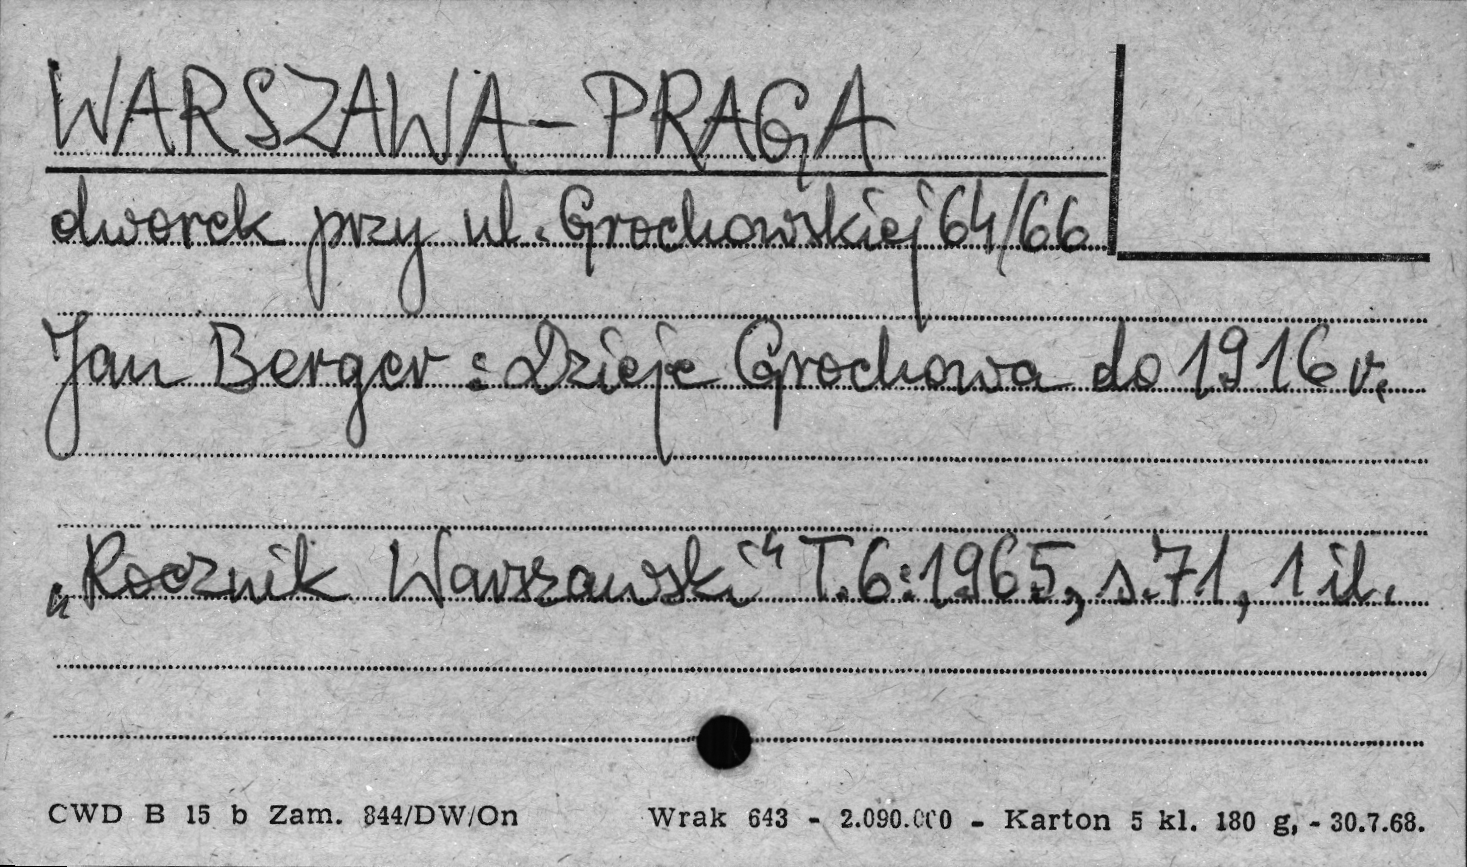 WARSZAWA-PRAGA
dworek przy ul. Grochowskiej 64/66
Jan Berger: Dzieje Grochowa do 1916 r.
„Rocznik Warszawski" T.6:1965, s.71, 1 il.
CWD B 15 b Zam. 844/DW/On Wrak 643 - 2.090.000 - Karton 5 kl. 180 g, - 30.7.68.